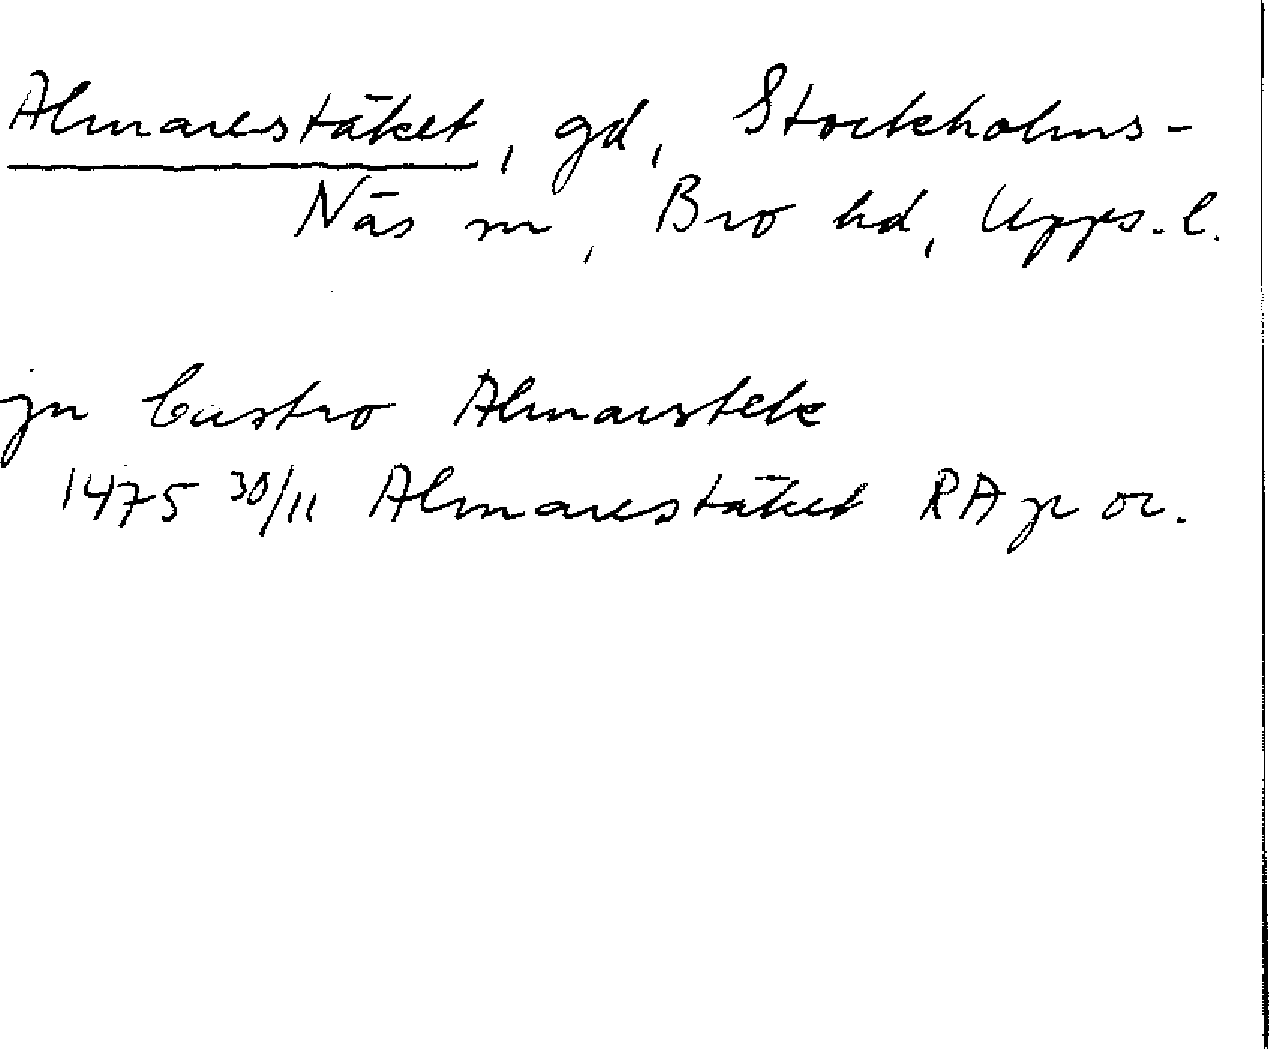 Almarestäket, gd, Stockholms-
Näs sn, Bro hd, Upps. l.
jn Castro Almarstek
1475 30/11 Almarestäket RAp or.